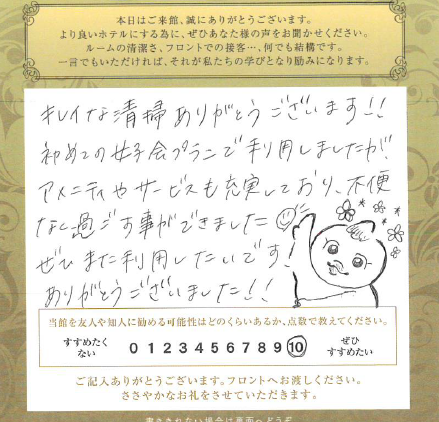 本日はご来館、誠にありがとうございます。
より良いホテルにする為に、ぜひあなた様の声をお聞かせください。
ルームの清潔さ、フロントでの接客…、何でも結構です。
一言でもいただければ、それが私たちの学びとなり励みになります。
キレイな清掃ありがとうございます!!
初めての女子会プランで利用しましたが、
アメニティやサービスも充実しており、不便
なく過ごす事ができました
ぜひまた利用したいです!
ありがとうございました!!
当館を友人や知人に勧める可能性はどのくらいあるか、点数で教えてください。
すすめたくない 0 1 2 3 4 5 6 7 8 9 10 ぜひすすめたい
ご記入ありがとうございます。フロントへお渡しください。
ささやかなお礼をさせていただきます。
書ききれない場合は裏面へどうぞ